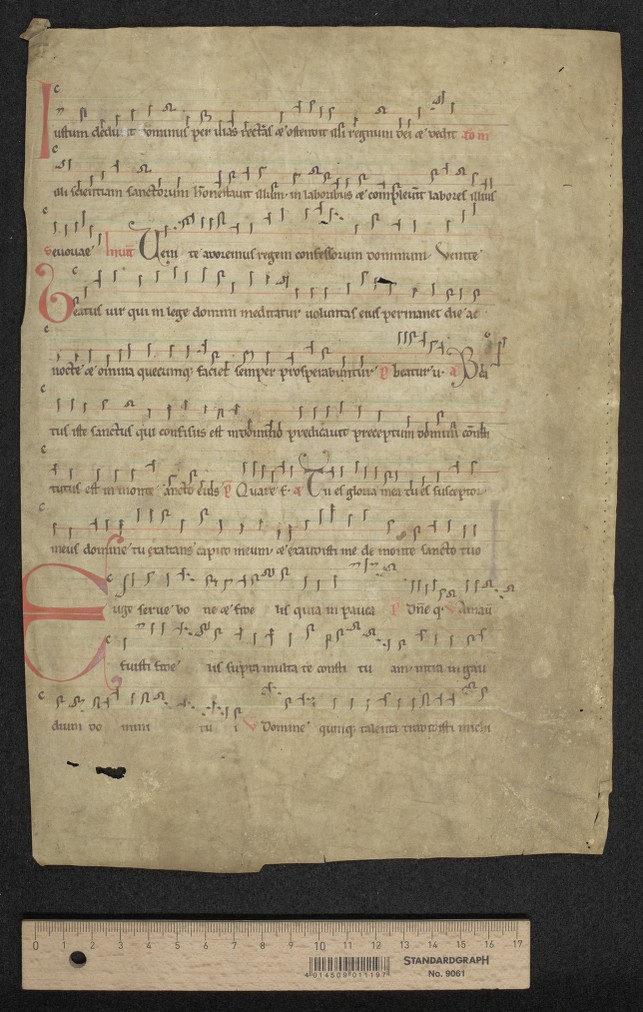 Iustum deduxit dominus per uias rectas & ostendit illi regnum dei & dedit
illi scientiam sanctorum honestauit illum in laboribus & compleuit labores illius
euouae Inuit Ueni te adoremus regem confessorum dominum. Venite
Beatus uir qui in lege domini meditatur uoluntas eius permanet die ac
nocte & omnia quecumq; faciet semper prosperabuntur p beatus u. a Bea
tus iste sanctus qui confisus est in domino predicauit preceptum domini consti
tutus est in monte sancto eius p Quare f. a Tu es gloria mea tu es susceptor
meus domine tu exaltans caput meum & exaudisti me de monte sancto tuo
Euge serue bo ne & fide lis quia in pauca p Dne q. Amaui
fuisti fide lis supra multa te consti tu am intra in gau
dium do mini tu i V Domine quinq; talenta tradidisti michi
0 1 2 3 4 5 6 7 8 9 10 11 12 13 14 15 16 17
STANDARDGRAPH
4 014509 011197
No. 9061